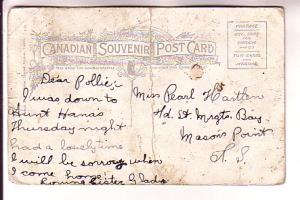 CANADIAN SOUVENIR POST CARD
Dear Pollie,-
I was down to
Aunt Hana's
Thursday night
had a lovely time
I will be sorroy when
I come home.
Loving Sister Gladys
Miss Pearl
Hd. St. Mrgts. Bay
Masons Point
N. S.